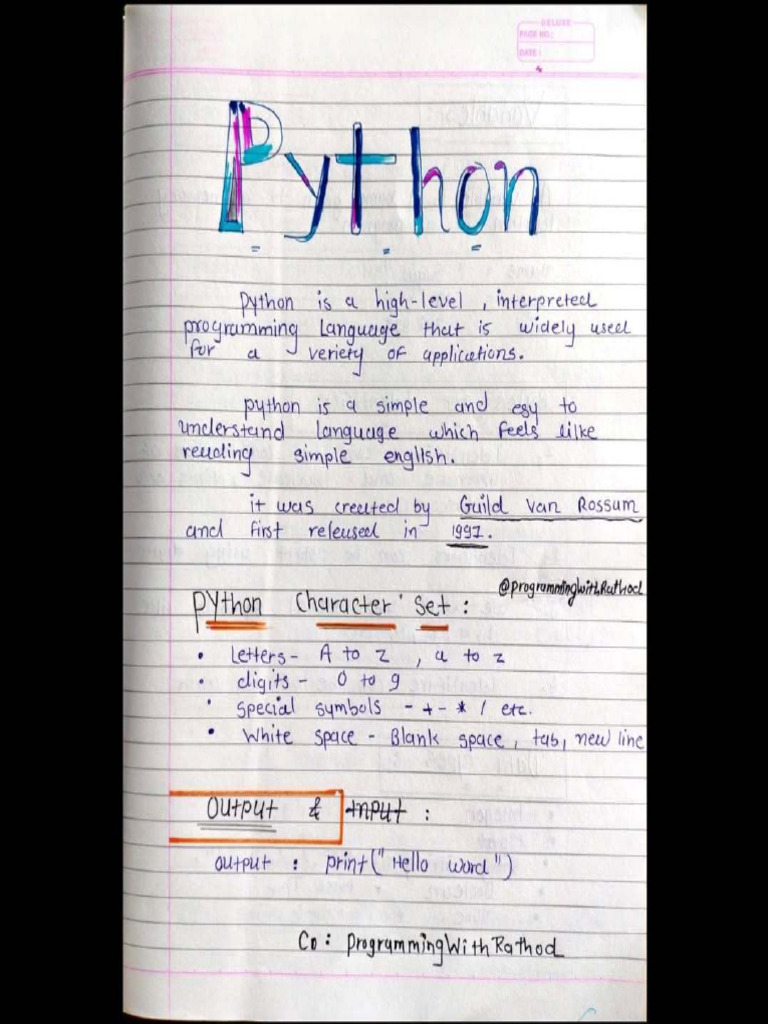 DELUXE
PAGE NO.:
DATE:
Python
Python is a high-level, interpreted
programming language that is widely used
for a veriety of applications.
python is a simple and esy to
understand language which feels lilke
reading simple english.
it was created by Guild van Rossum
and first released in 1991.
@programmingwithRathod
Python Character Set :
• Letters - A to Z , a to z
• digits - 0 to 9
• special symbols - + - * / etc.
• White space - Blank space, tab, new line
Output & Input :
output : print("Hello word")
Co: programmingWithRathod